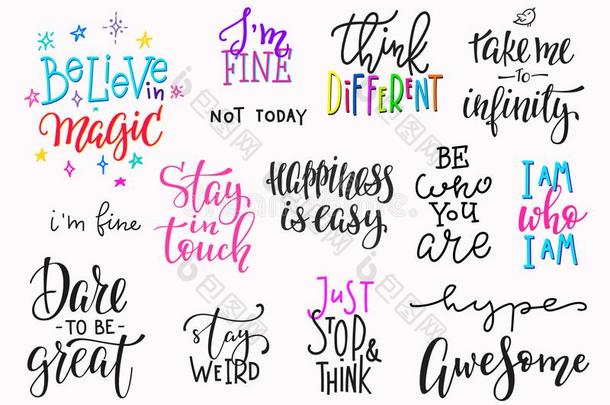 Believe
in
Magic
I'm
FINE
NOT TODAY
think
DiFFERENT
take me
to
infinity
i'm fine
Stay
in
touch
Happiness
is easy
BE
who
YOU
are
I AM
who
I AM
Dare
- TO BE -
great
stay
WEIRD
JuST
STOP &
THINK
hype
Awesome
包图网